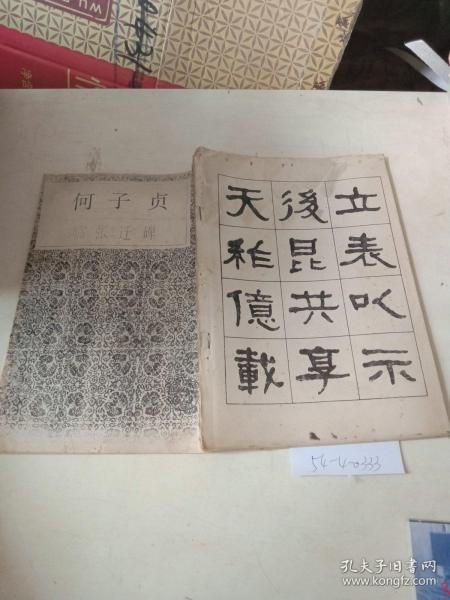 何子贞
临张迁碑
立表㕥示
後昆共享
天祚億載
54-4-0333
孔夫子旧书网
www.kongfz.com